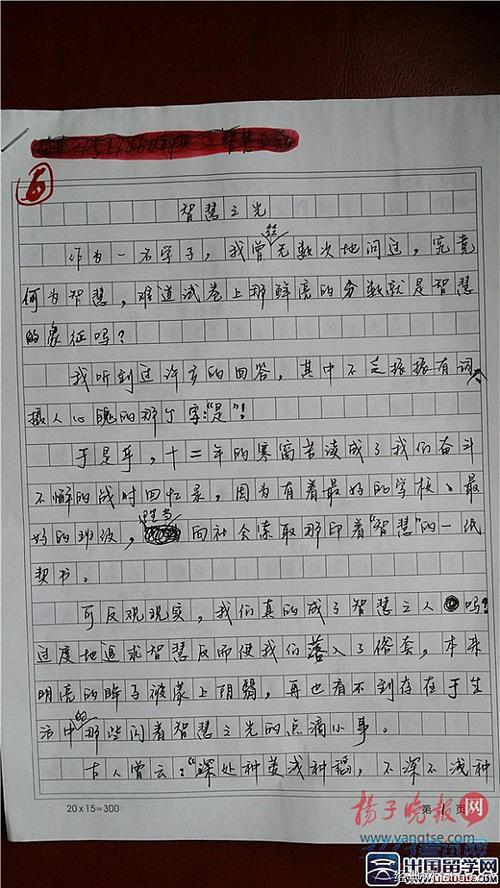 6
智慧之光
作为一名学子，我曾经无数次地问过，究竟
何为智慧，难道试卷上那鲜亮的分数就是智慧
的象征吗？
我听到过许多的回答，其中不乏振振有词、
摄人心魄的那个字："是"！
于是乎，十二年的寒窗苦读成了我们奋斗
不懈的战时回忆录，因为有着最好的学校、最
好的班级，向社会索取那印着"智慧"的一纸
契书。
可反观现实，我们真的成了智慧之人吗？
过度地追求智慧反而使我们落入了俗套，本来
明亮的眸子被蒙上阴翳，再也看不到存在于生
活中的那些闪着智慧之光的点滴小事。
古人曾云："深处种菱浅种稻，不深不浅种
20×15=300
第 1 页
扬子晚报网
www.yangtse.com
出国留学网